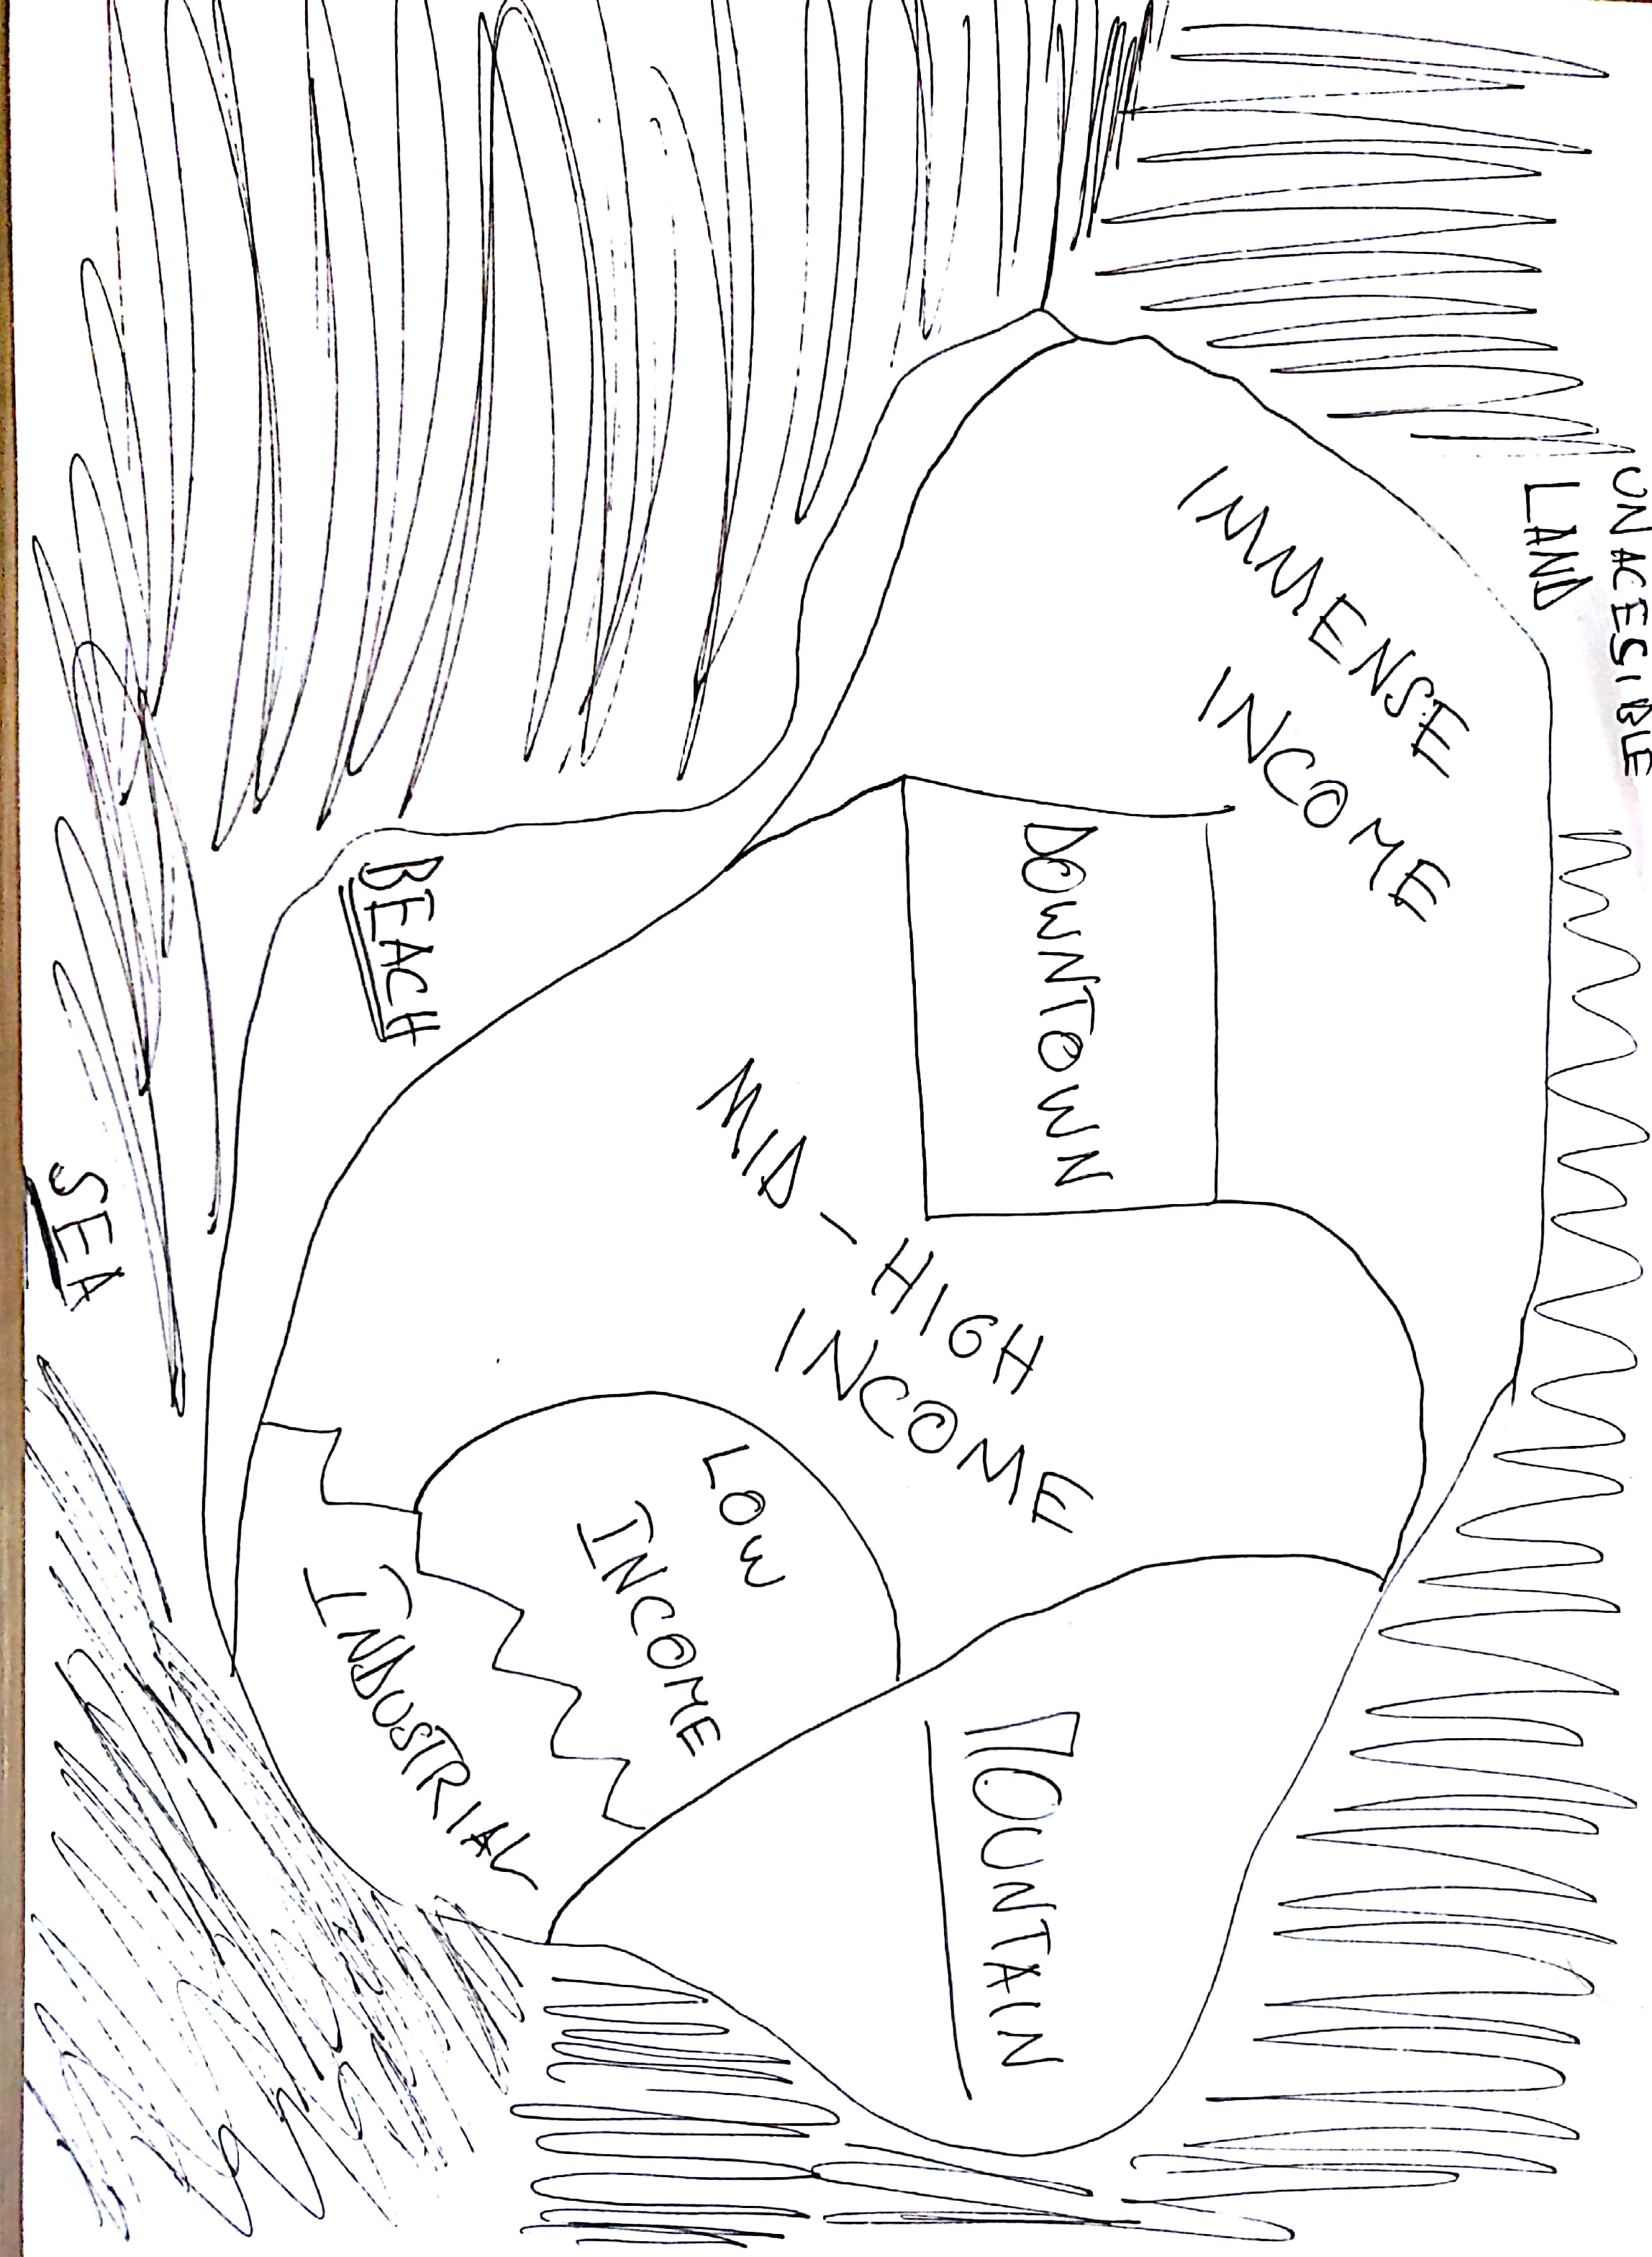 UNACESIBLE
LAND
IMMENSE
INCOME
DOWNTOWN
MID-HIGH
INCOME
MOUNTAIN
LOW
INCOME
INDUSTRIAL
BEACH
SEA